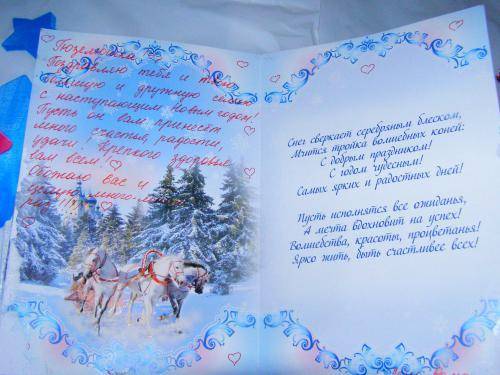 Гюзелюшка,
Поздравляю тебя и твою
большую и дружную семью
с наступающим новым годом!
Пусть он вам принесёт
много счастья, радости,
удачи! Крепкого здоровья
вам всем!
Обожаю вас и
целую много-много
раз!!!
Снег сверкает серебряным блеском,
Мчится тройка волшебных коней:
С добрым праздником!
С годом чудесным!
Самых ярких и радостных дней!
Пусть исполнятся все ожиданья,
А мечта вдохновит на успех!
Волшебства, красоты, процветанья!
Ярко жить, быть счастливее всех!